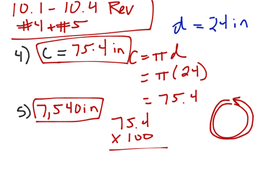 10.1 - 10.4 Rev
#4 + #5
d = 24 in
4) C = 75.4 in
C = π d
= π (24)
= 75.4
5) 7,540 in
75.4
x 100